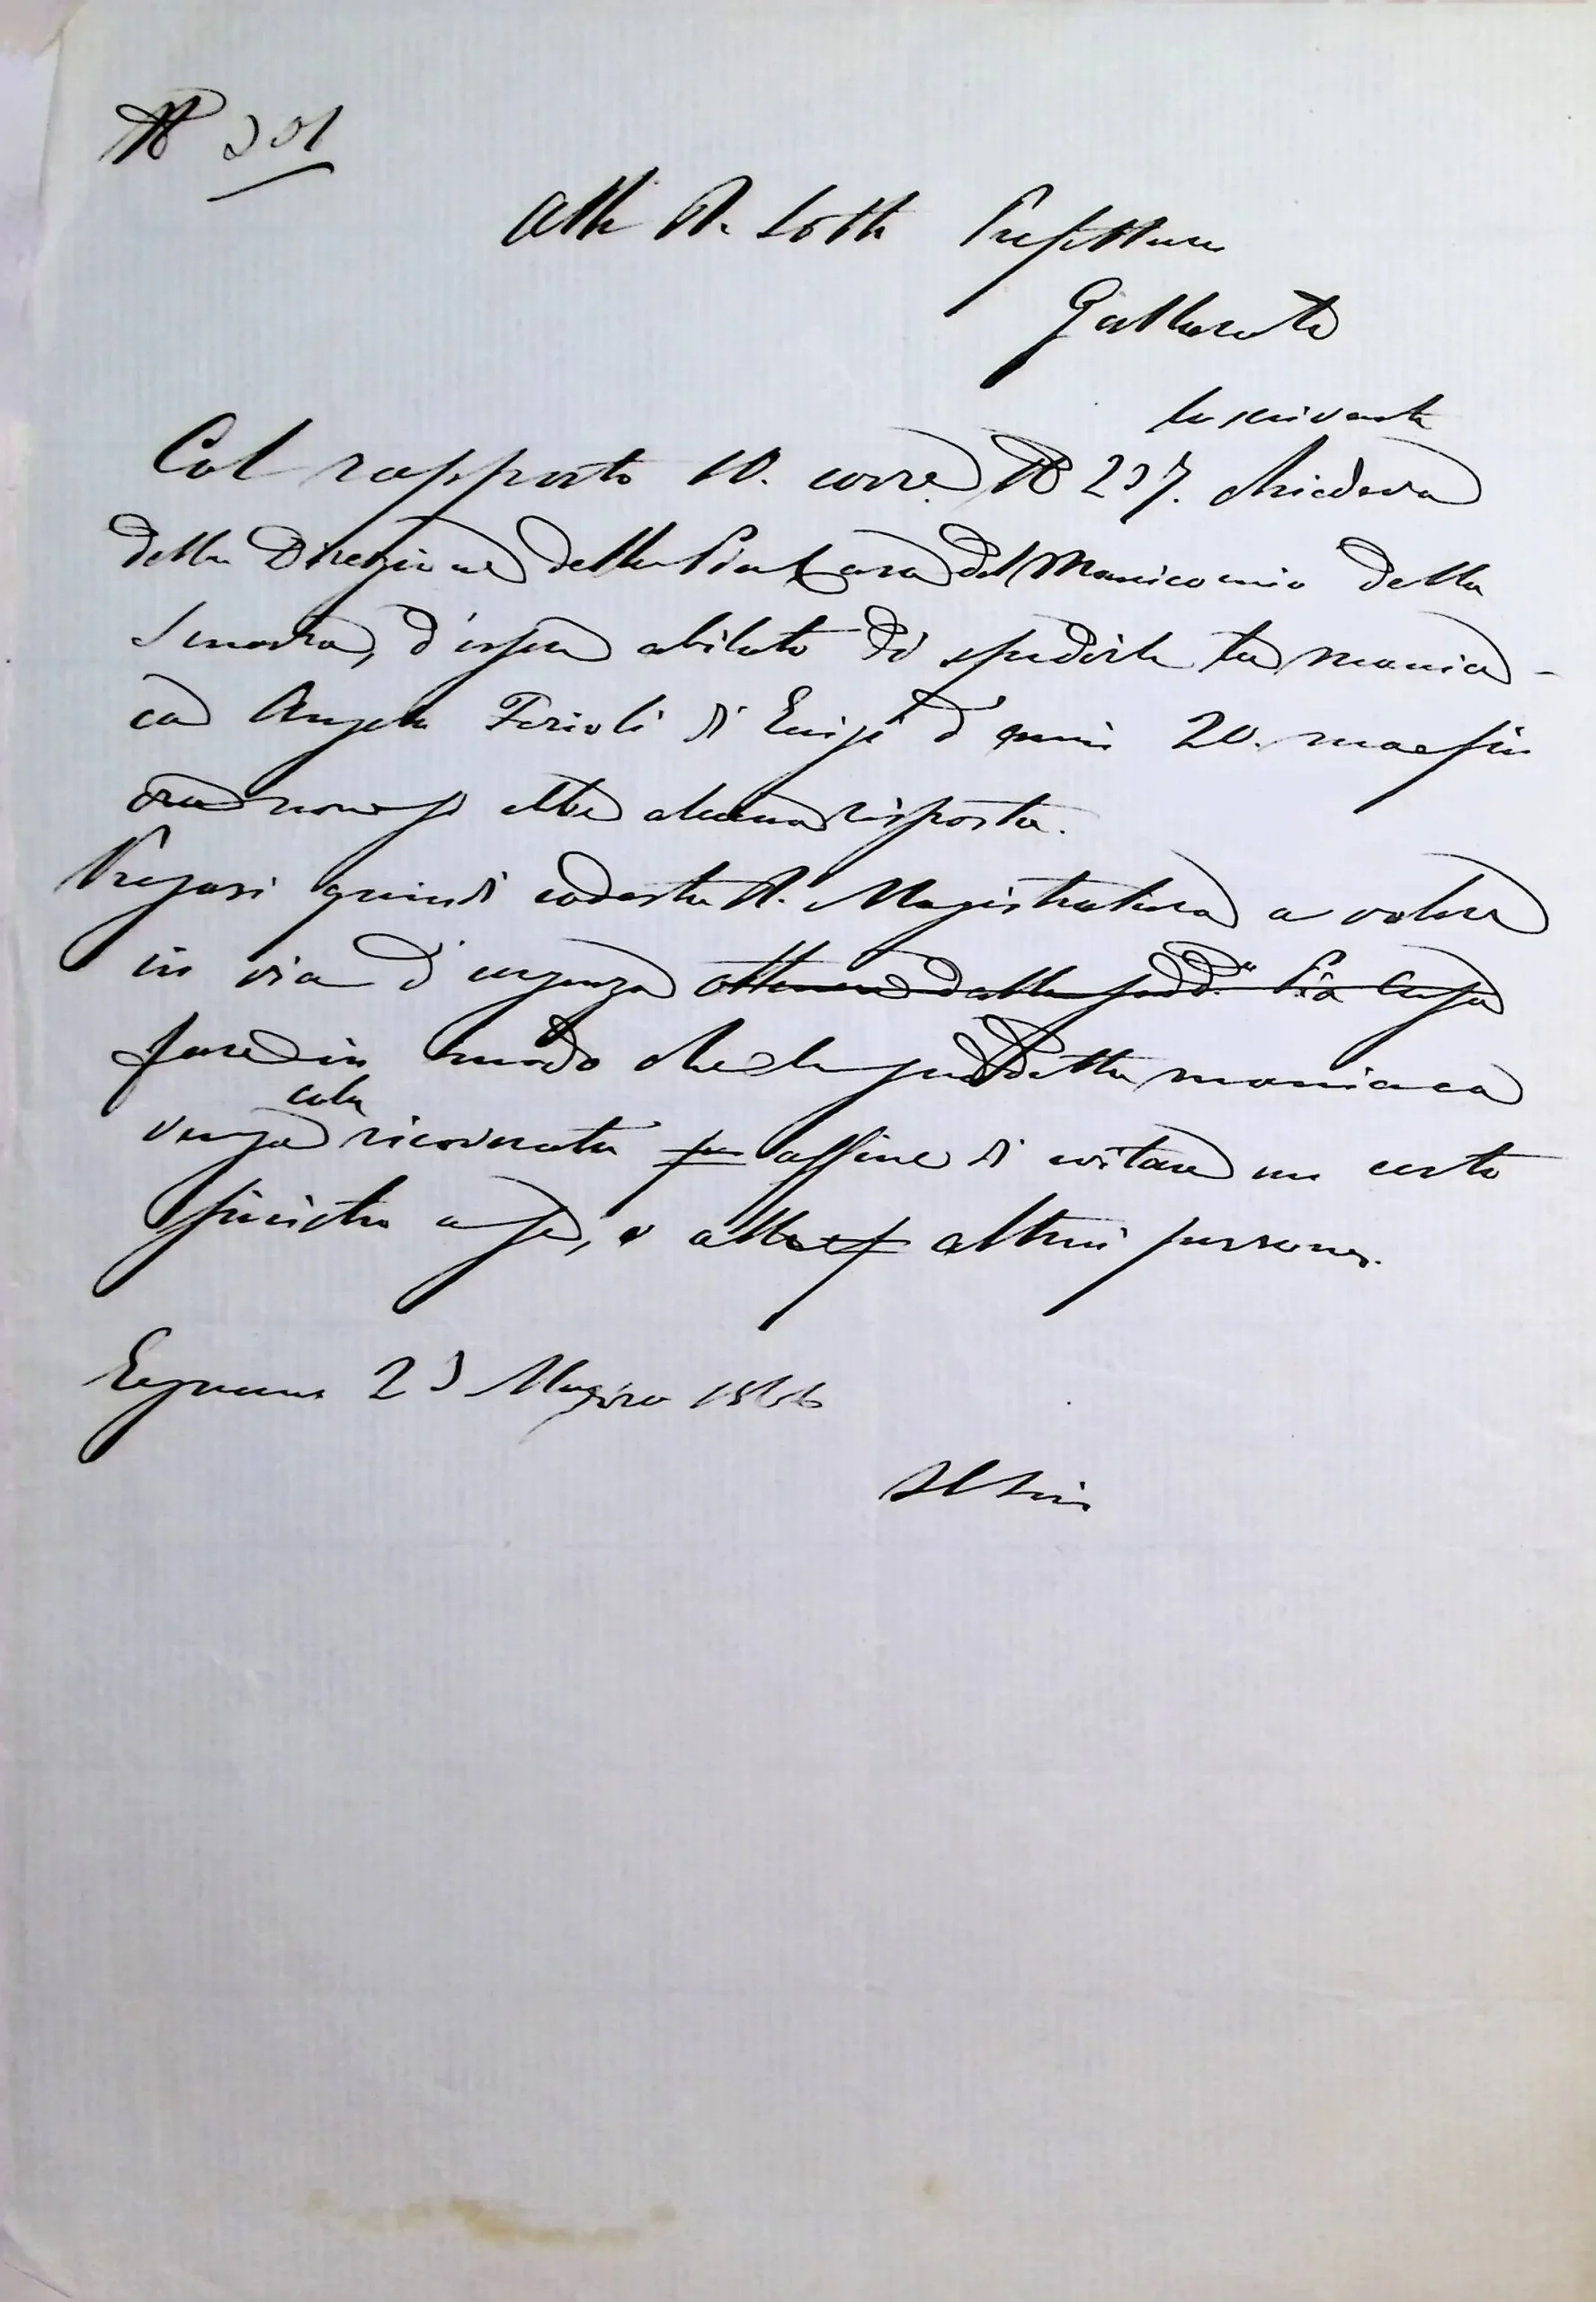 N° 301
Alla R. Sotto Prefettura
Gallarate
lo scrivente
Col rapporto 10. corre. N° 237. chiedeva
della Direzione della Pia Casa del Manicomio della
Senavra, d'esser abilitato di spedirle la mania-
ca Angela Ferioli di Luigi d'anni 20. ma fin
ora non si ebbe alcuna risposta.
Pregasi quindi codesta R. Magistratura a voler
in via d'urgenza ottenere dalla sudd.ª Pia Casa
fare in modo che la suddetta maniaca
colà
venga ricoverata per affine di evitare un certo
sinistro a se, o alle altrui persone.
Legnano 23 Marzo 1866
Il Sin